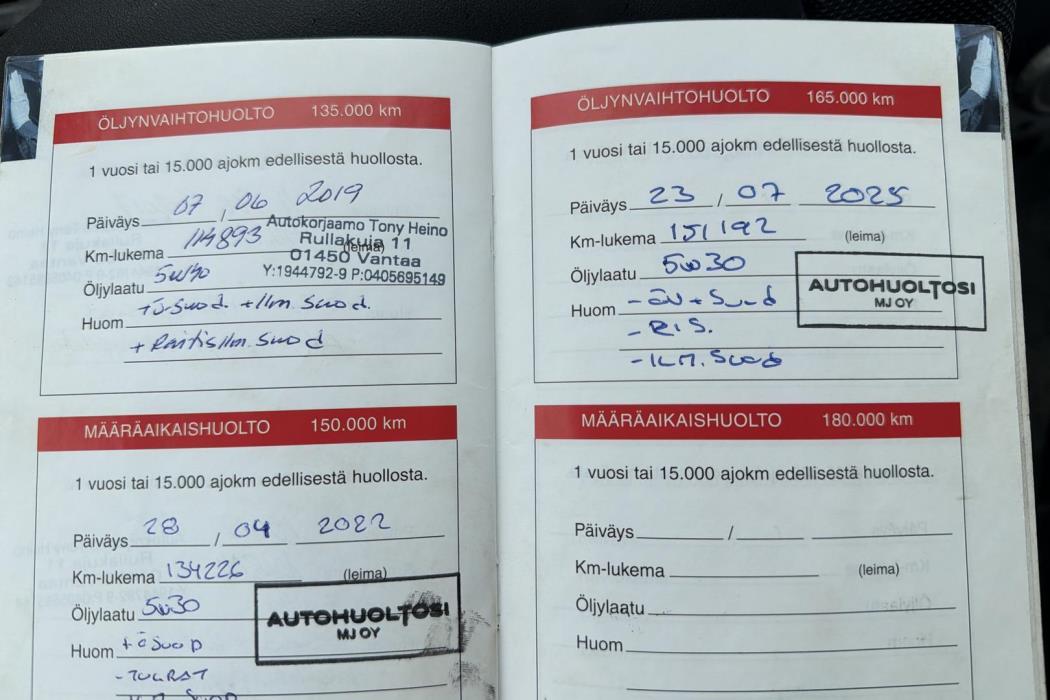 ÖLJYNVAIHTOHUOLTO 135.000 km
1 vuosi tai 15.000 ajokm edellisestä huollosta.
Päiväys 07 / 06 2019
Autokorjaamo Tony Heino
Km-lukema 114893 (leima)
Rullakuja 11
01450 Vantaa
Öljylaatu 5w30
Y:1944792-9 P:0405695149
+ö-suod. +Ilm. suod.
Huom
+ Raitisilm. suod
MÄÄRÄAIKAISHUOLTO 150.000 km
1 vuosi tai 15.000 ajokm edellisestä huollosta.
Päiväys 28 / 04 2022
Km-lukema 134226 (leima)
Öljylaatu 5w30
AUTOHUOLTOSI
MJ OY
Huom + öSuoD
- TULPAT
ÖLJYNVAIHTOHUOLTO 165.000 km
1 vuosi tai 15.000 ajokm edellisestä huollosta.
Päiväys 23 / 07 2025
Km-lukema 151192 (leima)
Öljylaatu 5w30
AUTOHUOLTOSI
MJ OY
Huom - öV + Suod
- R.I.S.
- ILM. Suod
MÄÄRÄAIKAISHUOLTO 180.000 km
1 vuosi tai 15.000 ajokm edellisestä huollosta.
Päiväys /
Km-lukema (leima)
Öljylaatu
Huom